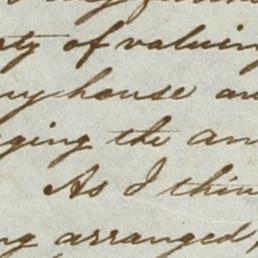 of valuing
my house
ging the
As I thin
ng arranged,